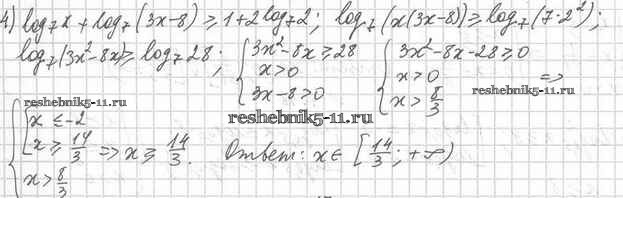 4) log₇x + log₇(3x-8) ≥ 1+2log₇2; log₇(x(3x-8)) ≥ log₇(7·2²);
log₇(3x²-8x) ≥ log₇28; { 3x²-8x ≥ 28 { 3x²-8x-28 ≥ 0
x > 0 x > 0 =>
3x-8 > 0 x > 8/3
reshebnik5-11.ru reshebnik5-11.ru
reshebnik5-11.ru
{ [ x ≤ -2
x ≥ 14/3 => x ≥ 14/3. Ответ: x ∈ [14/3; +∞)
x > 8/3